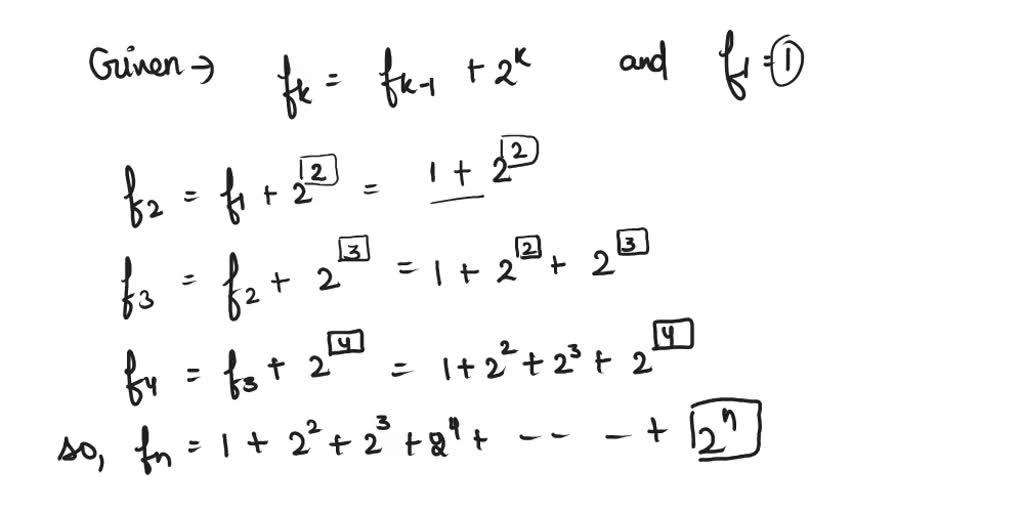 Given → fₖ = fₖ₋₁ + 2ᵏ and f₁ = 1
f₂ = f₁ + 2² = 1 + 2²
f₃ = f₂ + 2³ = 1 + 2² + 2³
f₄ = f₃ + 2⁴ = 1 + 2² + 2³ + 2⁴
so, fₙ = 1 + 2² + 2³ + 2⁴ + -- -- — + 2ⁿ